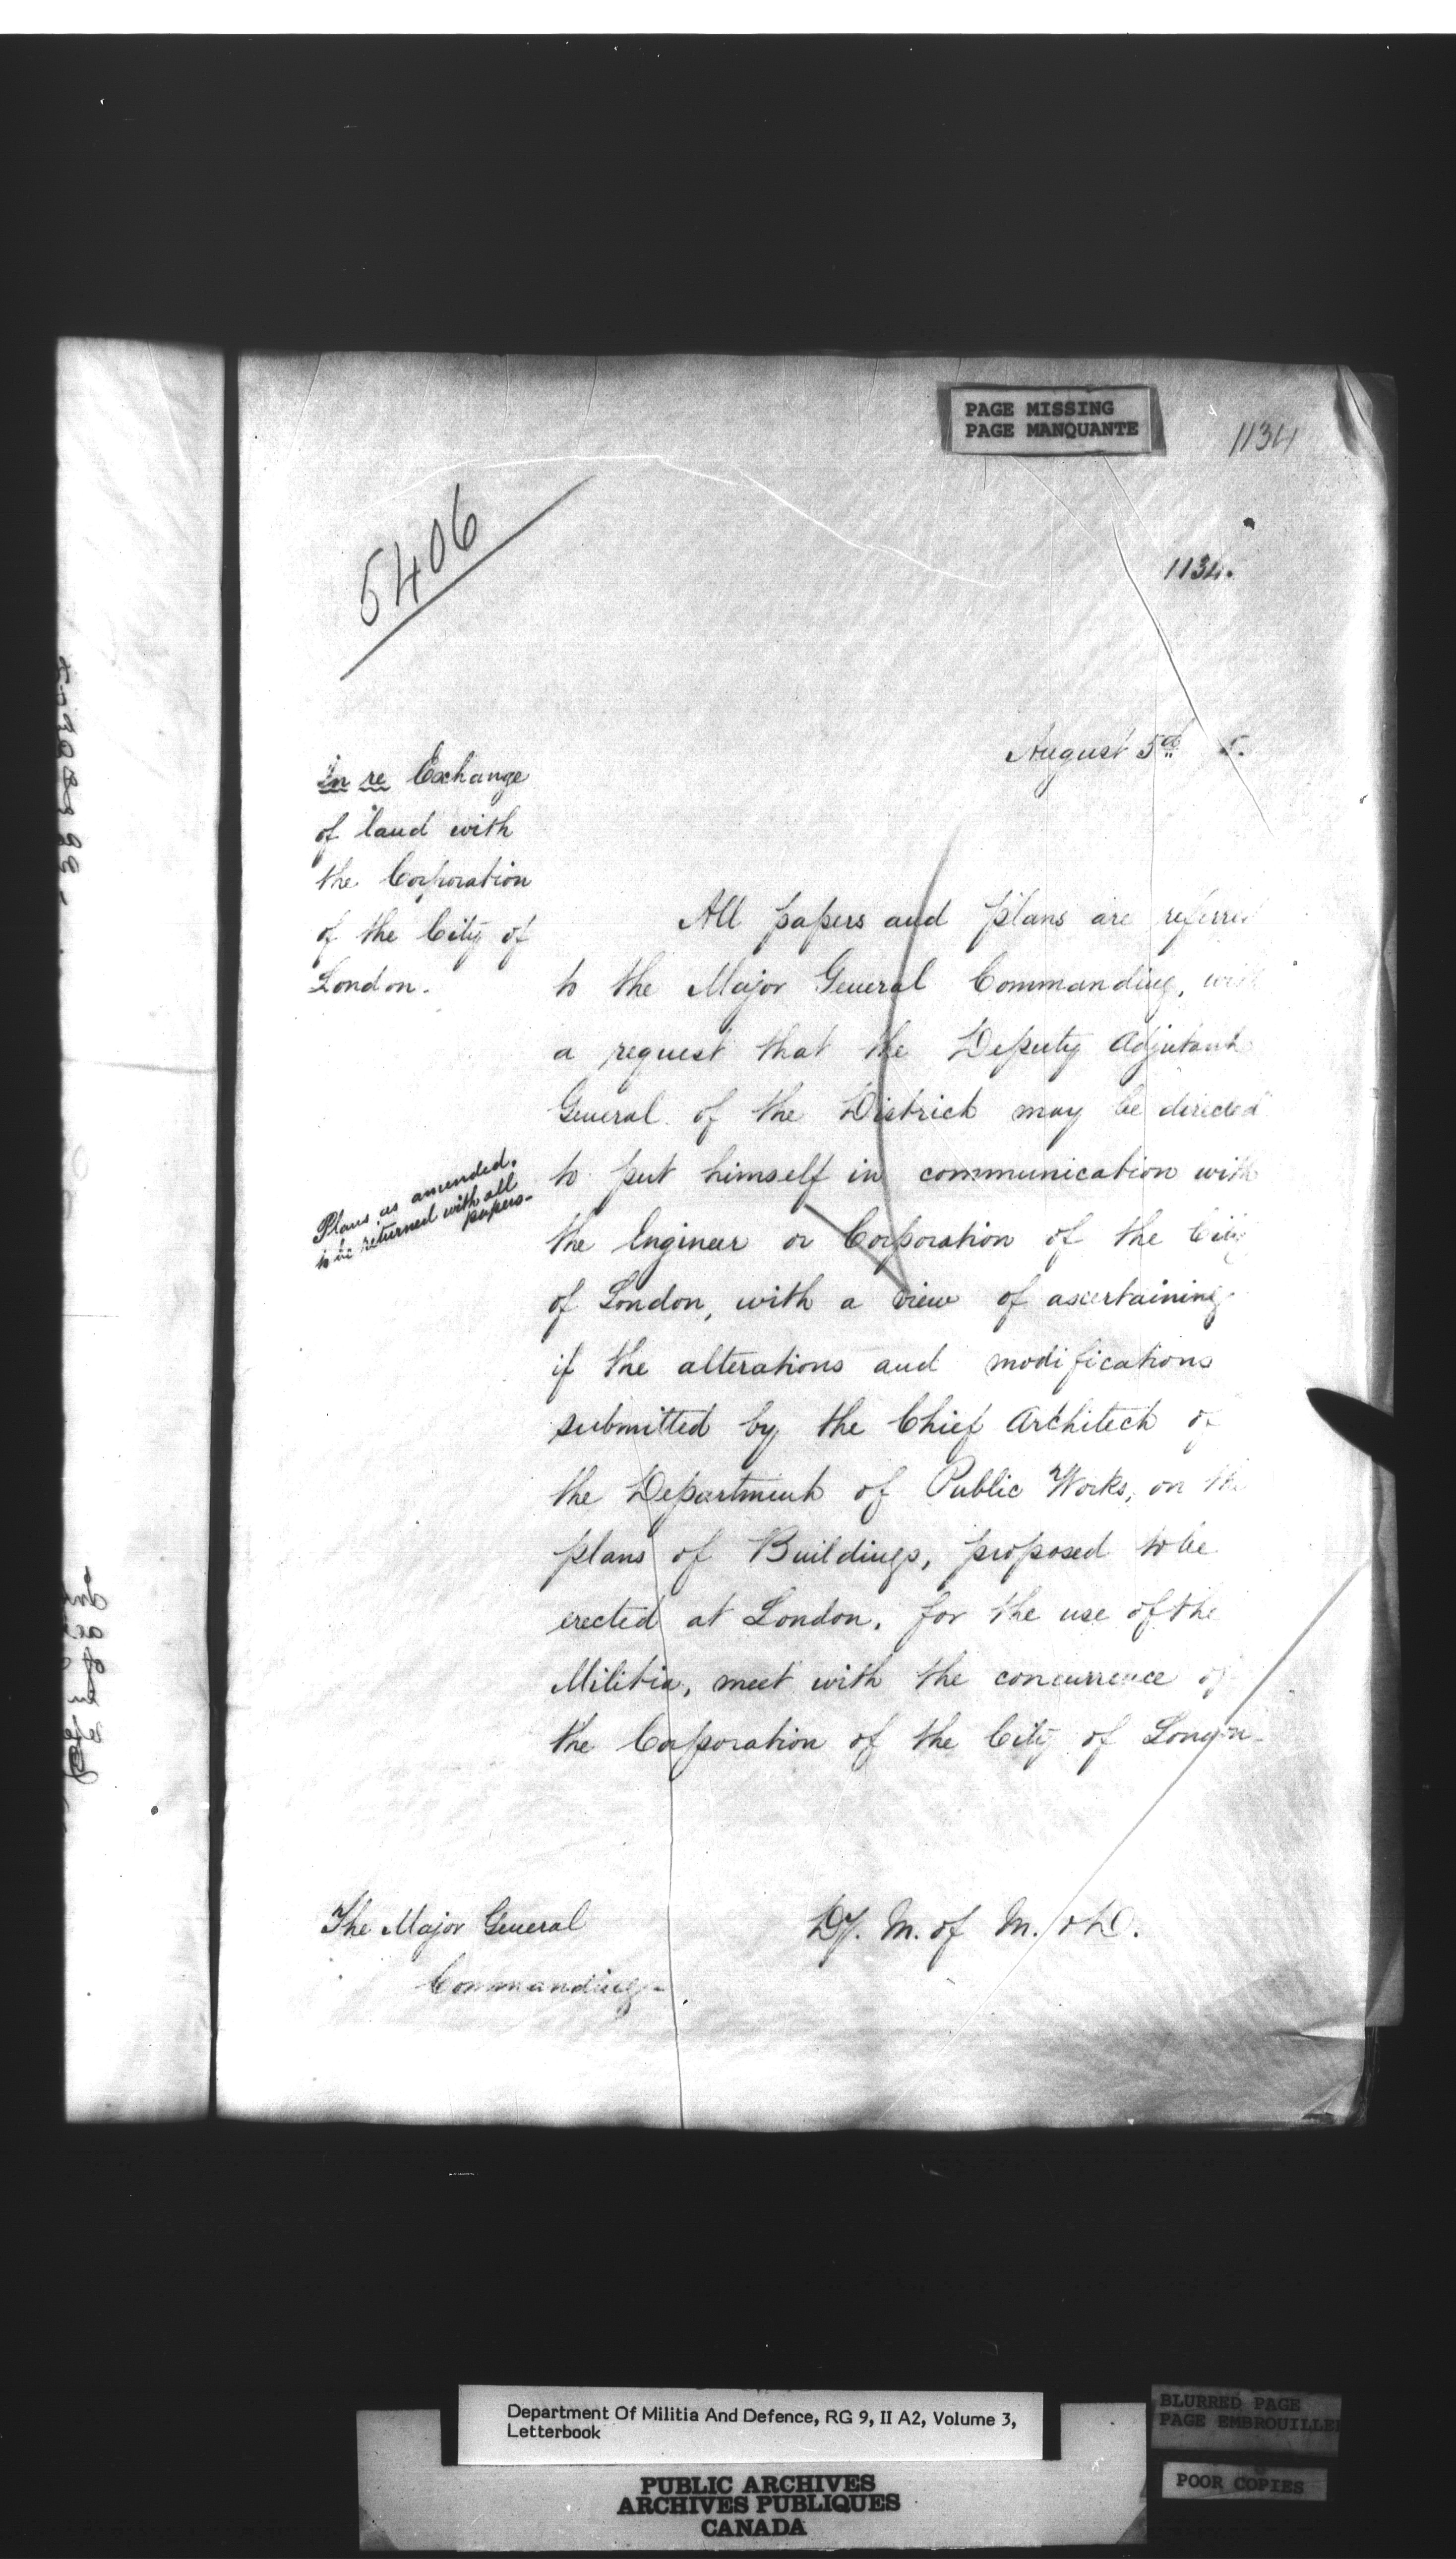 PAGE MISSING
PAGE MANQUANTE
1134
5406
1134.
August 5th 5.
In re Exchange
of land with
the Corporation
of the City of
London.
All papers and plans are referred
to the Major General Commanding, with
a request that the Deputy Adjutant
General of the District may be directed
to put himself in communication with
Plans as amended.
to be returned with all
papers-
the Engineer or Corporation of the City
of London, with a view of ascertaining
if the alterations and modifications
submitted by the Chief Architect of
the Department of Public Works, on the
plans of Buildings, proposed to be
erected at London, for the use of the
Militia, meet with the concurrence of
the Corporation of the City of London-
The Major General
Commanding-
Dy. M. of M. & D.
Department Of Militia And Defence, RG 9, II A2, Volume 3,
Letterbook
BLURRED PAGE
PAGE EMBROUILLEE
POOR COPIES
PUBLIC ARCHIVES
ARCHIVES PUBLIQUES
CANADA